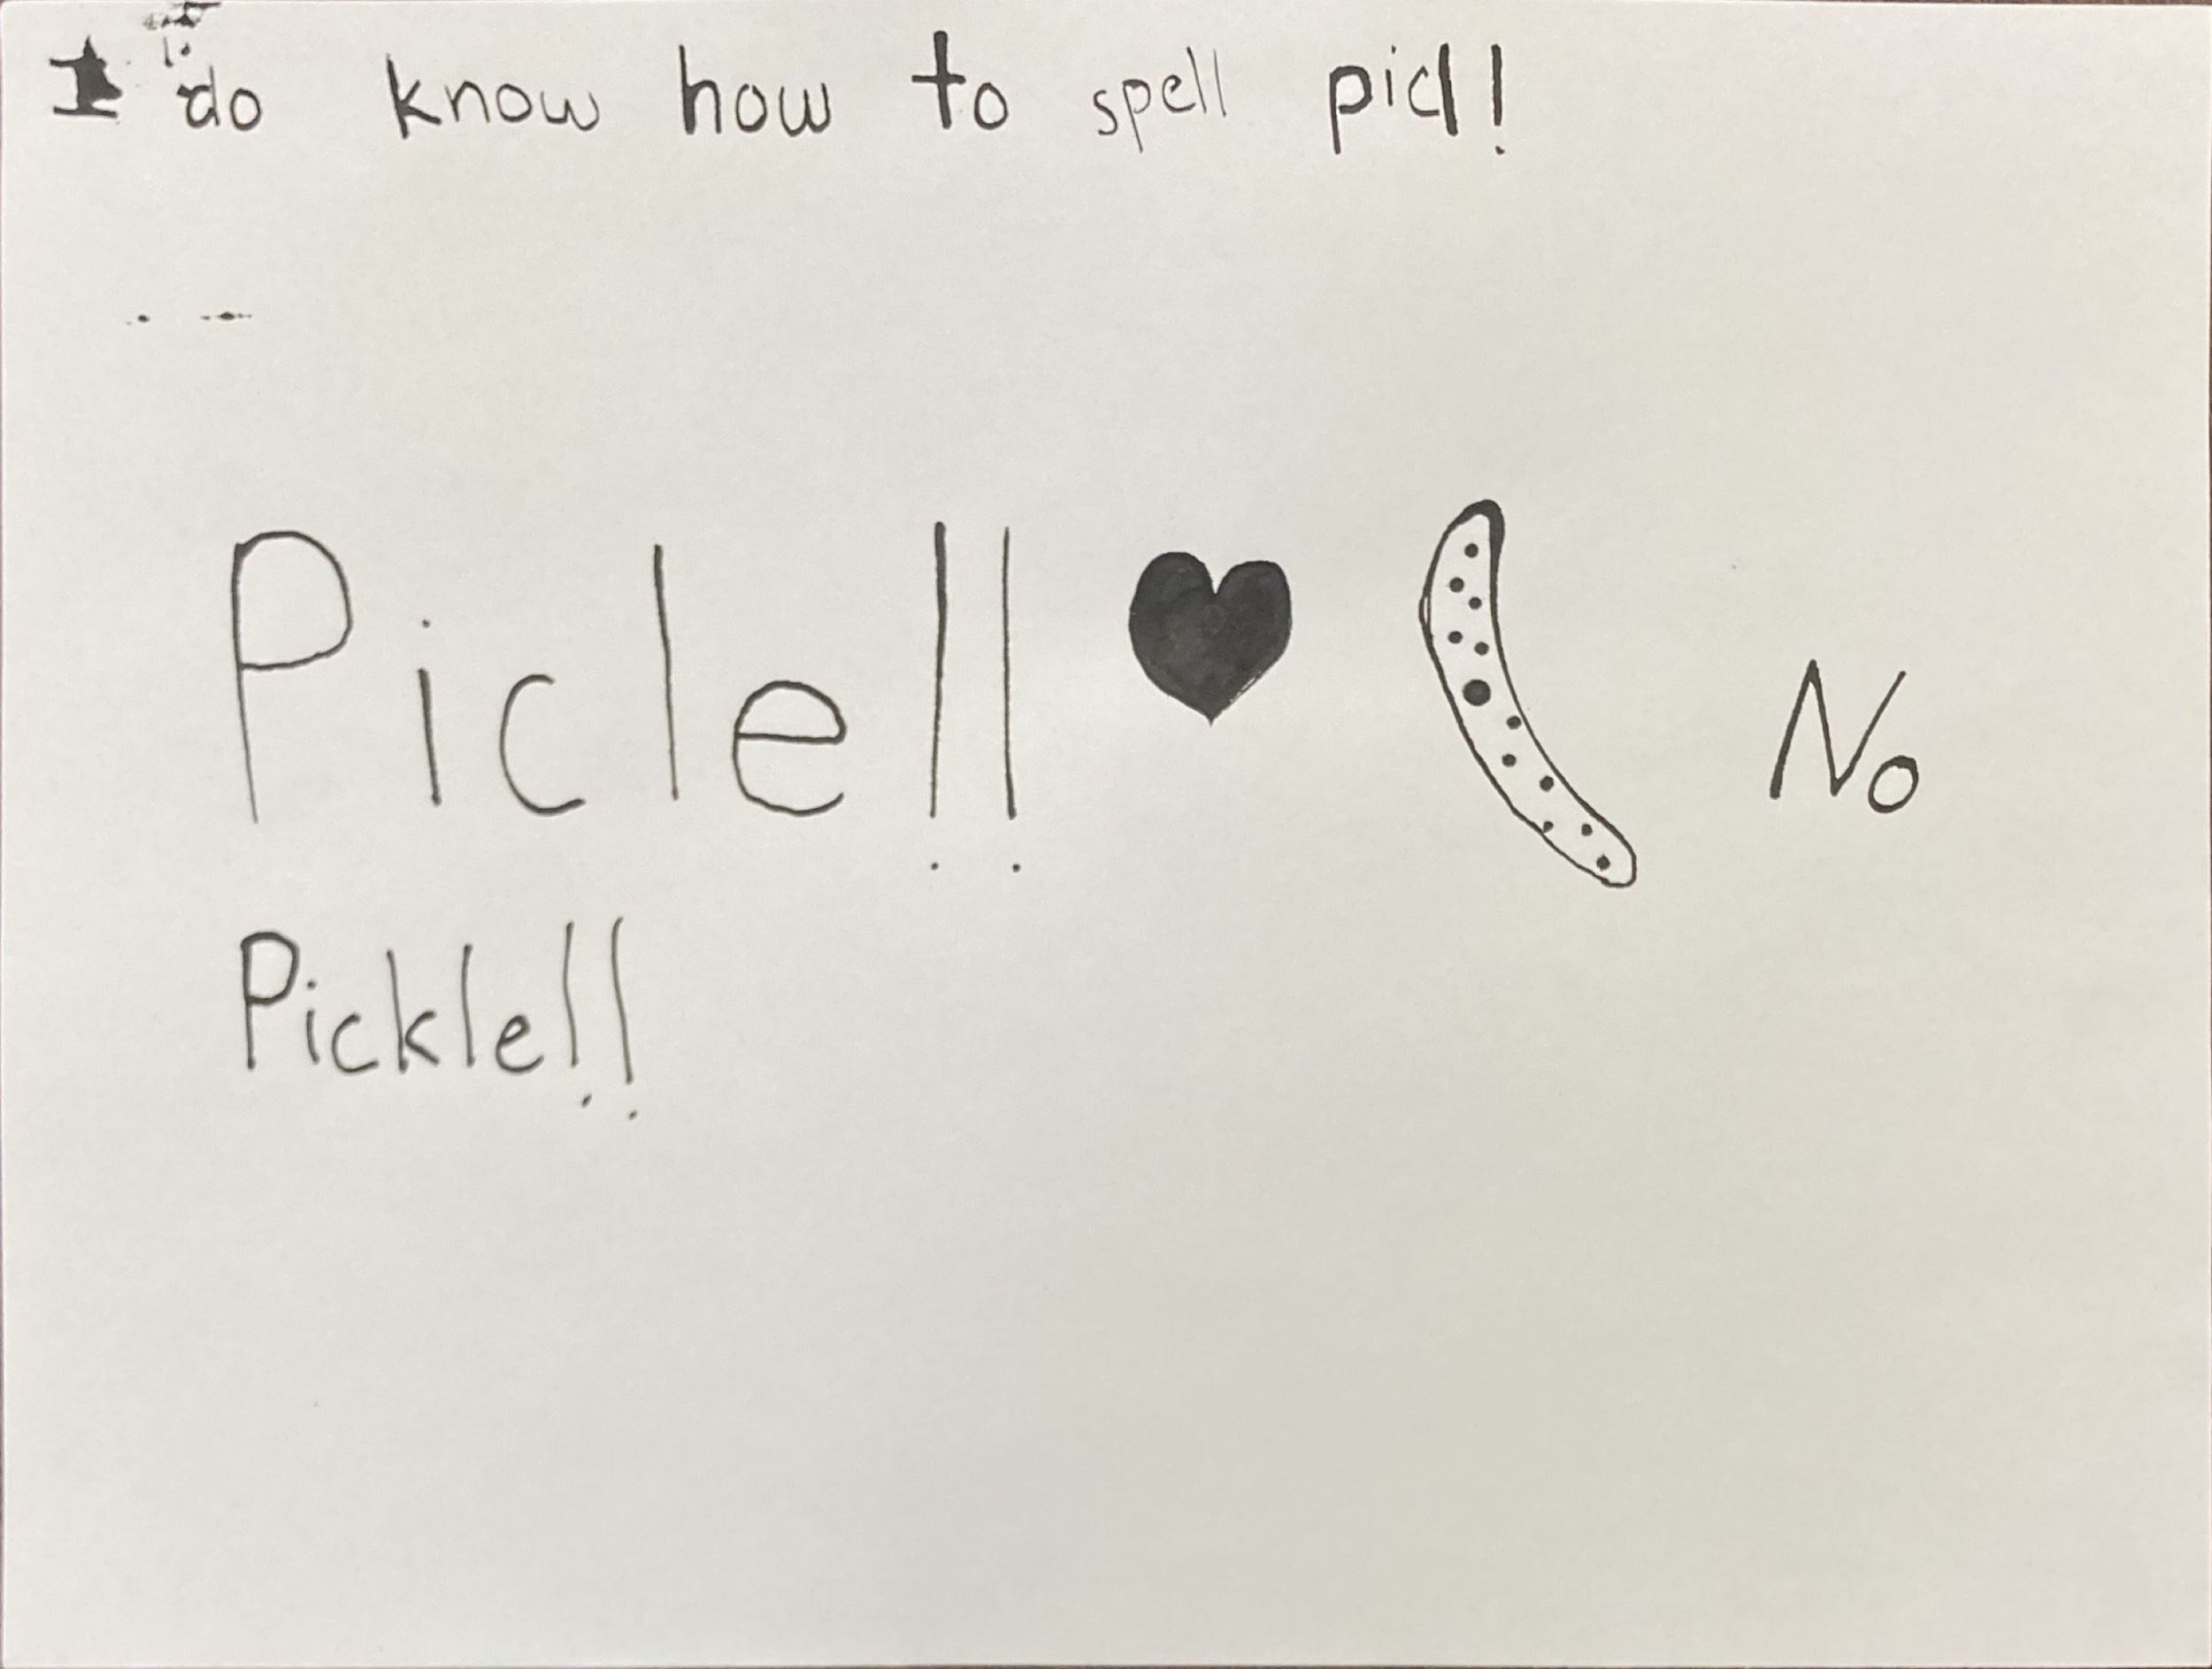 I do know how to spell picl!
Picle!! No
Pickle!!